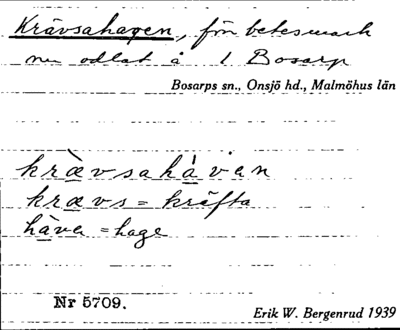 Krävsahagen, förr betesmark
nu odlat å 1 Bosarp
Bosarps sn., Onsjö hd., Malmöhus län
kræ̀vsahá̱van
kræ̱vs = kräfta
hà̱va = hage
Nr 5709.
Erik W. Bergenrud 1939